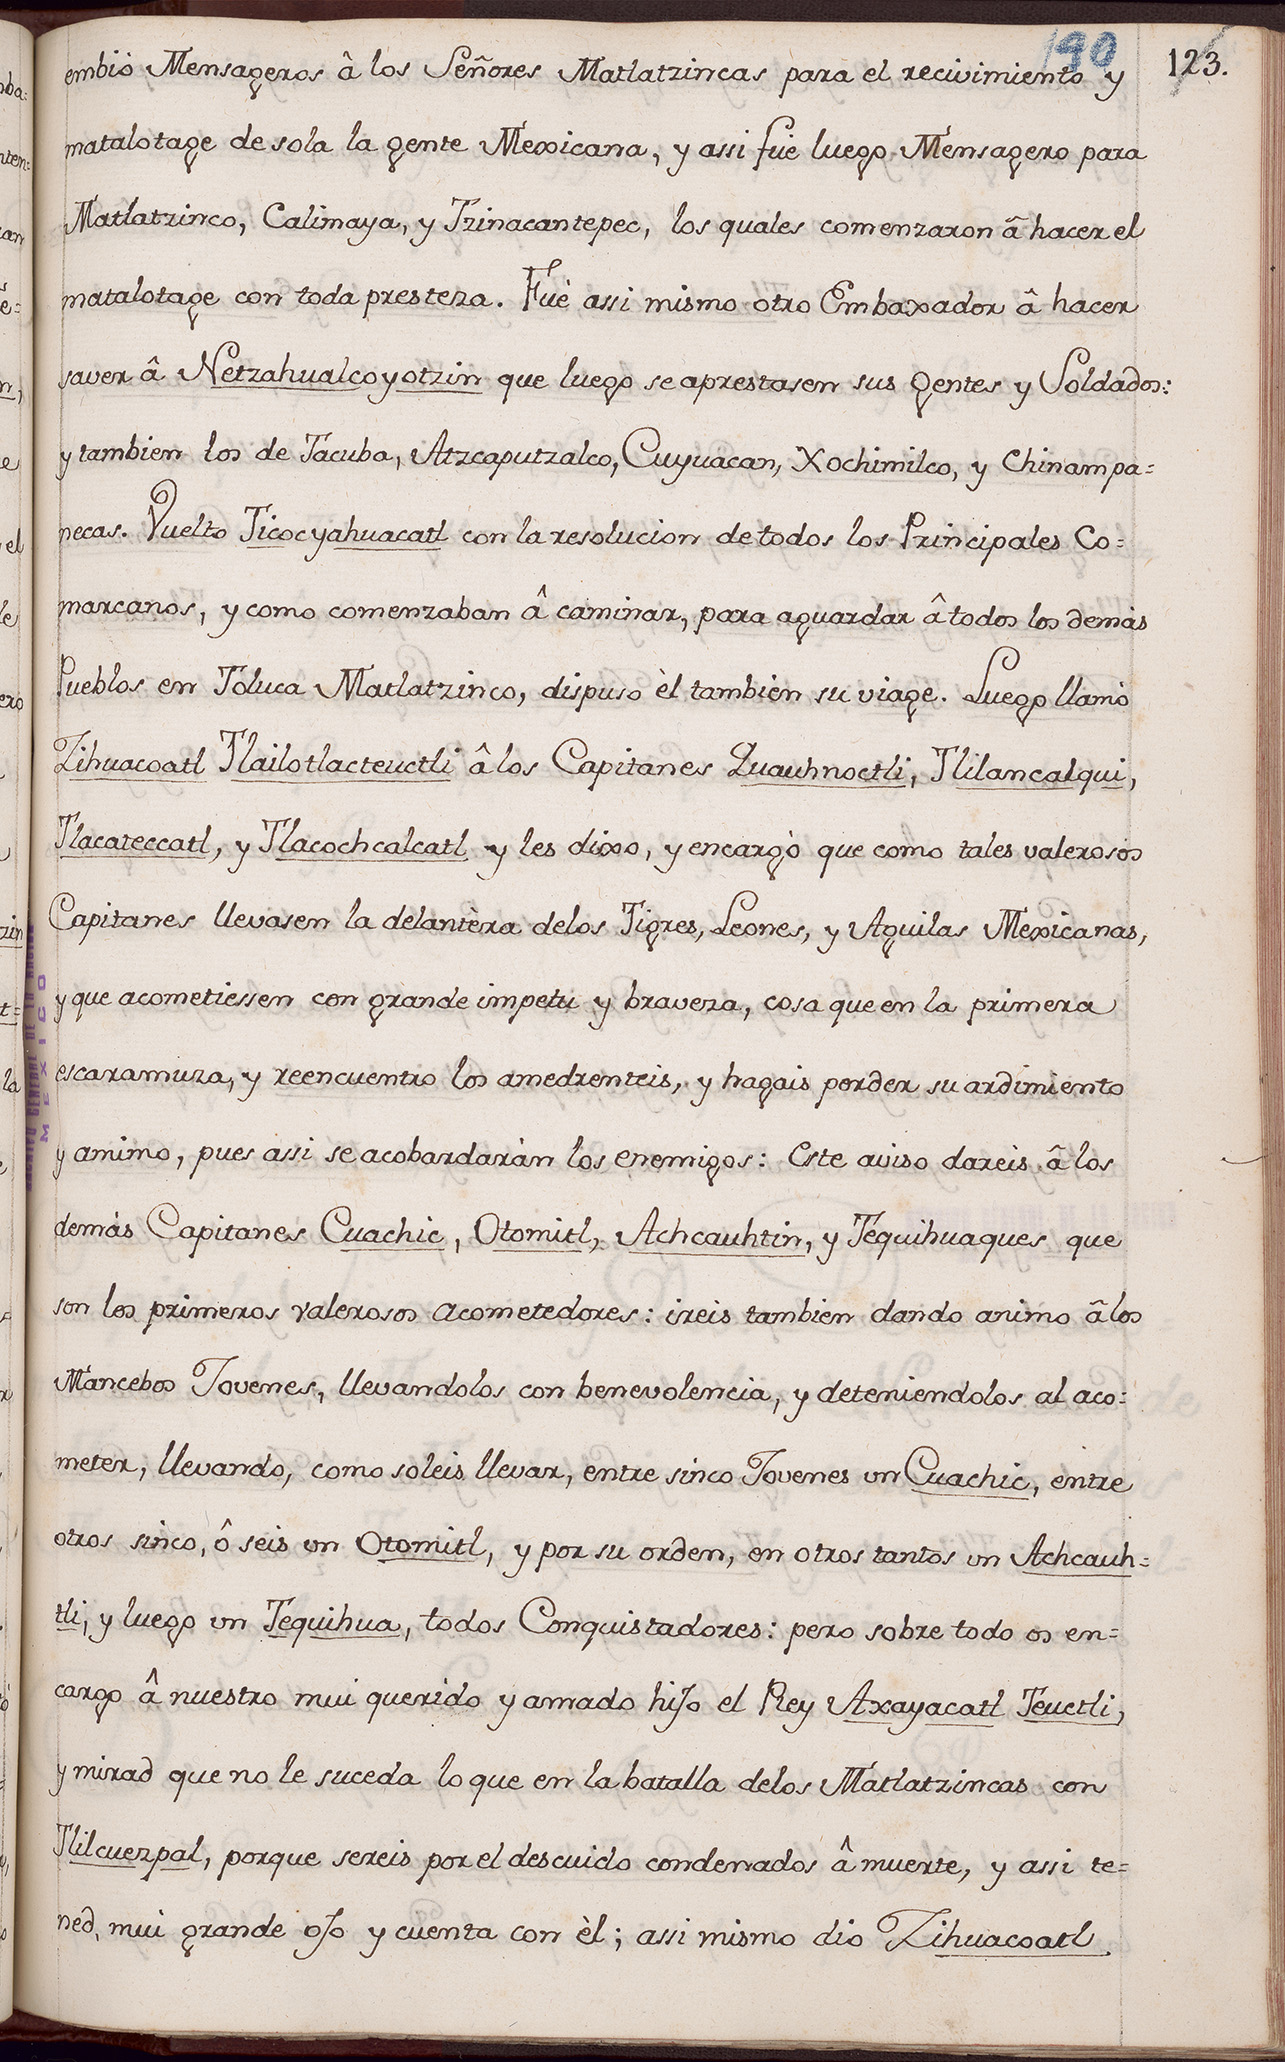 190 123.
embió Mensageros â los Señores Matlatzincas para el recivimiento y
matalotage de sola la gente Mexicana, y assi fué luego Mensagero para
Matlatzinco, Calimaya, y Tzinacantepec, los quales comenzaron â hacer el
matalotage con toda presteza. Fué assi mismo otro Embaxador â hacer
saver â Netzahualcoyotzin que luego se aprestasen sus gentes y Soldados:
y tambien los de Tacuba, Atzcaputzalco, Cuyuacan, Xochimilco, y Chinampa=
necas. Vuelto Ticocyahuacatl con la resolucion de todos los Principales Co=
marcanos, y como comenzaban â caminar, para aguardar â todos los demàs
Pueblos en Toluca Matlatzinco, dispuso èl tambien su viage. Luego llamò
Zihuacoatl Tlailotlacteuctli â los Capitanes Quauhnoctli, Tlilancalqui,
Tlacateccatl, y Tlacochcalcatl y les dixo, y encargò que como tales valerosos
Capitanes llevasen la delantera de los Tigres, Leones, y Aguilas Mexicanas,
y que acometiessen con grande impetu y braveza, cosa que en la primera
escaramuza, y reencuentro los amedrenteis, y hagais perder su ardimiento
y animo, pues assi se acobardaràn los enemigos: Este aviso dareis â los
demàs Capitanes Cuachic, Otomitl, Achcauhtin, y Tequihuaques que
son los primeros valerosos acometedores: ireis tambien dando animo â los
Mancebos Jovenes, llevandolos con benevolencia, y deteniendolos al aco=
meter, llevando, como soleis llevar, entre sinco Jovenes un Cuachic, entre
otros sinco, ô seis un Otomitl, y por su orden, en otros tantos un Achcauh=
tli, y luego un Tequihua, todos Conquistadores: pero sobre todo os en=
cargo â nuestro mui querido y amado hijo el Rey Axayacatl Teuctli,
y mirad que no le suceda lo que en la batalla de los Matlatzincas con
Tlilcuezpal, porque sereis por el descuido condenados â muerte, y assi te=
ned, mui grande ojo y cuenta con èl; assi mismo dio Zihuacoatl
MEXICO